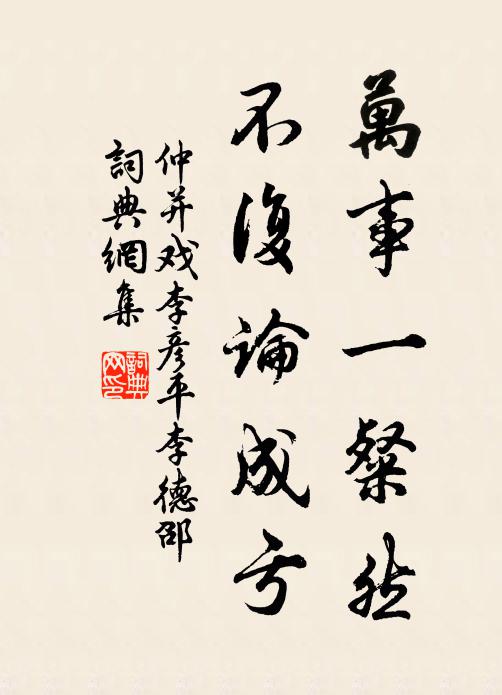 萬事一粲然
不復論成亏
仲并戏李彦平李德邵
詞典網集
詞典
网印